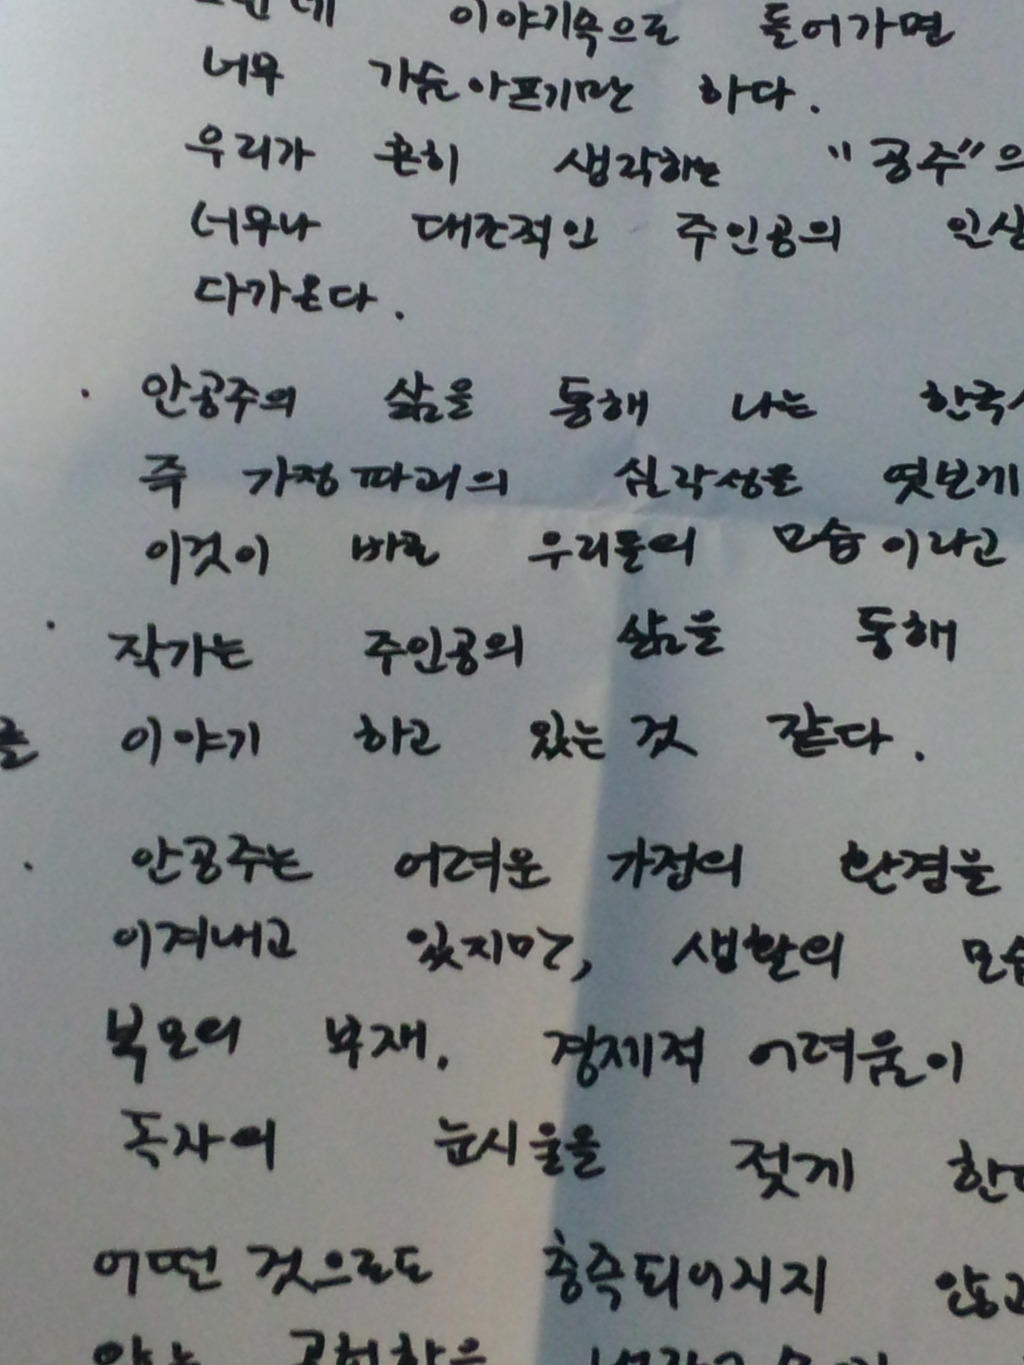 이야기속으로 들어가면
너무 가슴아프기만 하다.
우리가 흔히 생각하는 "공주"의
너무나 대조적인 주인공의 인상
다가온다.
· 안공주의 삶을 통해 나는 한국
즉 가정파괴의 심각성을 엿보게
이것이 바로 우리들의 모습이라고
· 작가는 주인공의 삶을 통해
를 이야기 하고 있는 것 같다.
· 안공주는 어려운 가정의 환경을
이겨내고 있지만, 생활의 모습
부모의 부재, 경제적 어려움이
독자의 눈시울을 젖게 한
어떤 것으로도 충족되어지지 않고